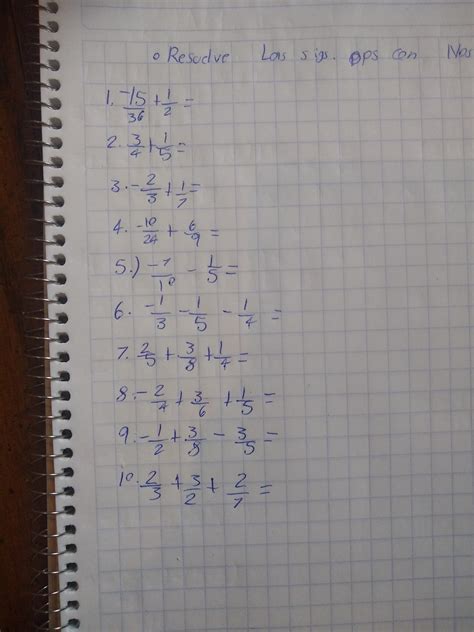 o Resolve Las sigs. ops con Nos
1. -15/36 + 1/2 =
2. 3/4 + 1/5 =
3. - 2/3 + 1/7 =
4. -10/24 + 6/9 =
5.) -7/10 - 1/5 =
6. -1/3 - 1/5 - 1/4 =
7. 2/5 + 3/8 + 1/4 =
8. - 2/4 + 3/6 + 1/5 =
9. - 1/2 + 3/8 - 3/5 =
10. 2/3 + 3/2 + 2/7 =